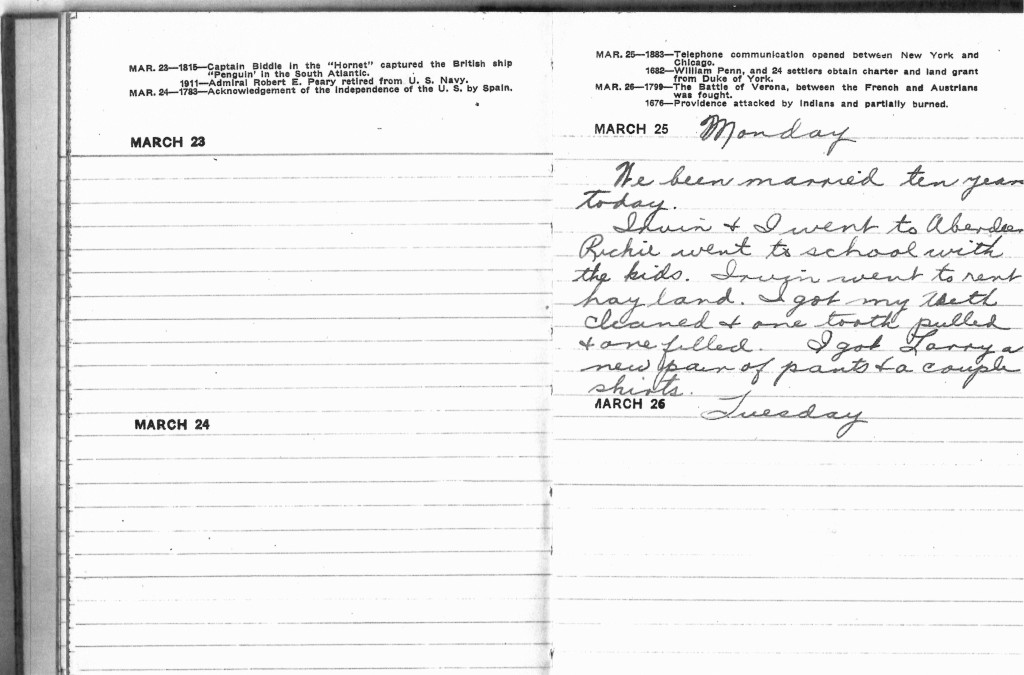 MAR. 23—1815—Captain Biddle in the "Hornet" captured the British ship
"Penguin' in the South Atlantic.
1911—Admiral Robert E. Peary retired from U. S. Navy.
MAR. 24—1783—Acknowledgement of the independence of the U. S. by Spain.
MARCH 23
MARCH 24
MAR. 25—1883—Telephone communication opened between New York and
Chicago.
1682—William Penn, and 24 settlers obtain charter and land grant
from Duke of York.
MAR. 26—1799—The Battle of Verona, between the French and Austrians
was fought.
1676—Providence attacked by Indians and partially burned.
MARCH 25 Monday
We been married ten years
today.
Irvin & I went to Aberdeen
Richie went to school with
the kids. Irvin went to rent
hay land. I got my teeth
cleaned & one tooth pulled
& one filled. I got Larry a
new pair of pants & a couple
shirts.
MARCH 26 Tuesday